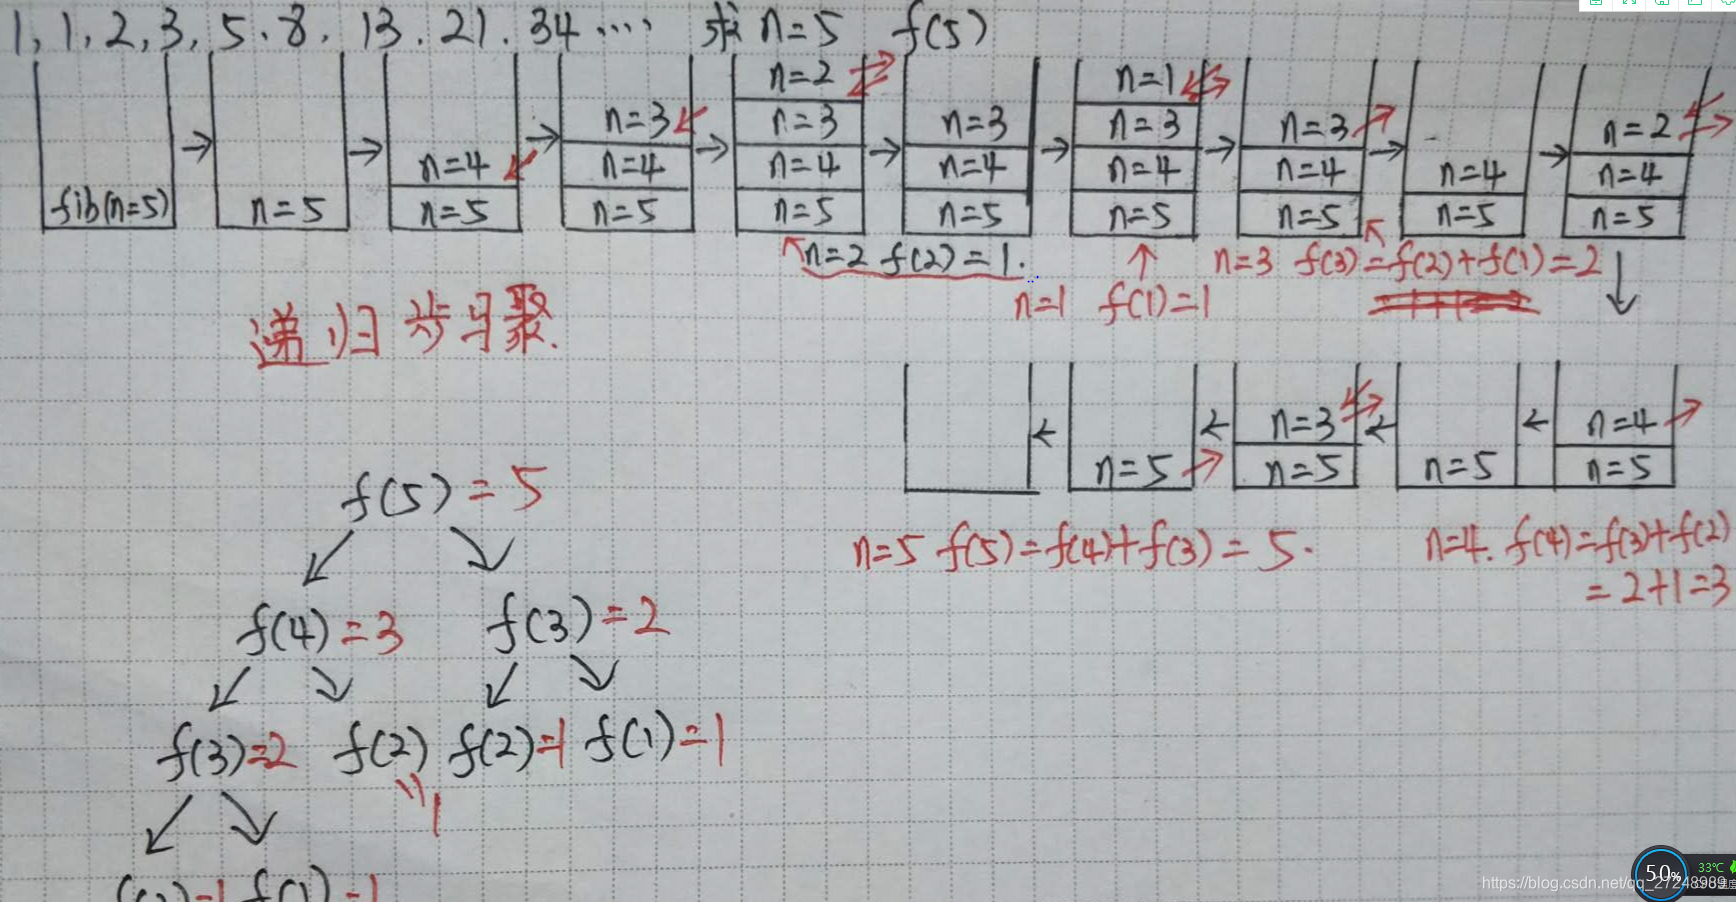 1, 1, 2, 3, 5, 8, 13, 21, 34 .... 求 n=5 f(5)
n=2 n=1
n=3 n=3 n=3 n=3 n=3 n=2
n=4 n=4 n=4 n=4 n=4 n=4 n=4 n=4
fib(n=5) n=5 n=5 n=5 n=5 n=5 n=5 n=5 n=5 n=5
n=2 f(2)=1. n=3 f(3)=f(2)+f(1)=2
n=1 f(1)=1
递归步骤.
n=3 n=4
n=5 n=5 n=5 n=5
f(5)=5
n=5 f(5)=f(4)+f(3)=5. n=4. f(4)=f(3)+f(2)
=2+1=3
f(4)=3 f(3)=2
f(3)=2 f(2) f(2)=1 f(1)=1
=1
f(1)=1
50% 33℃
https://blog.csdn.net/qq_27248989